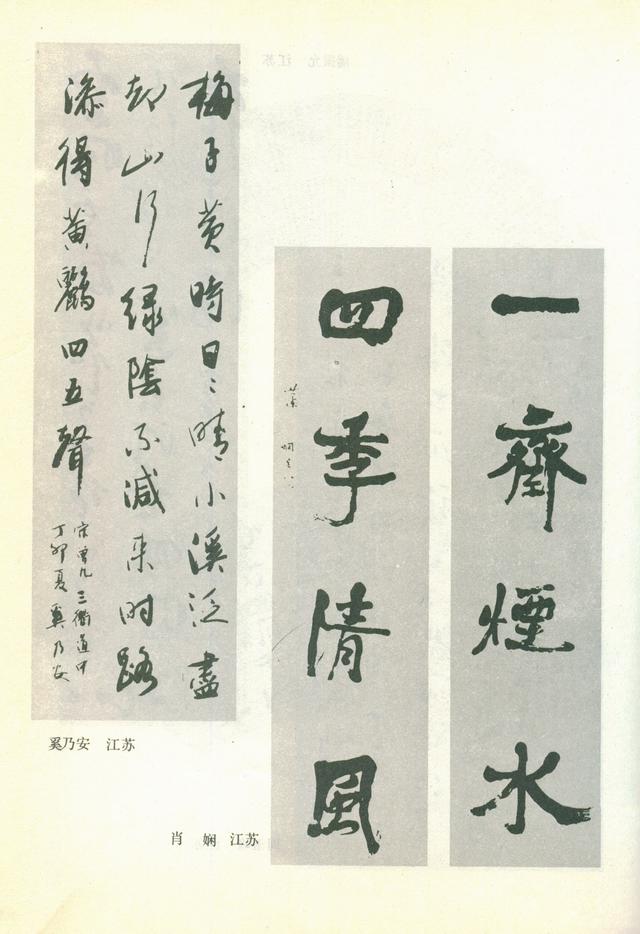 梅子黄時日々晴小溪泛盡
却山行緑陰不減来时路
添得黄鸝四五聲
宋曾几三衢道中
丁卯夏奚乃安
奚乃安 江苏
一齋煙水
四季清風
肖 娴 江苏